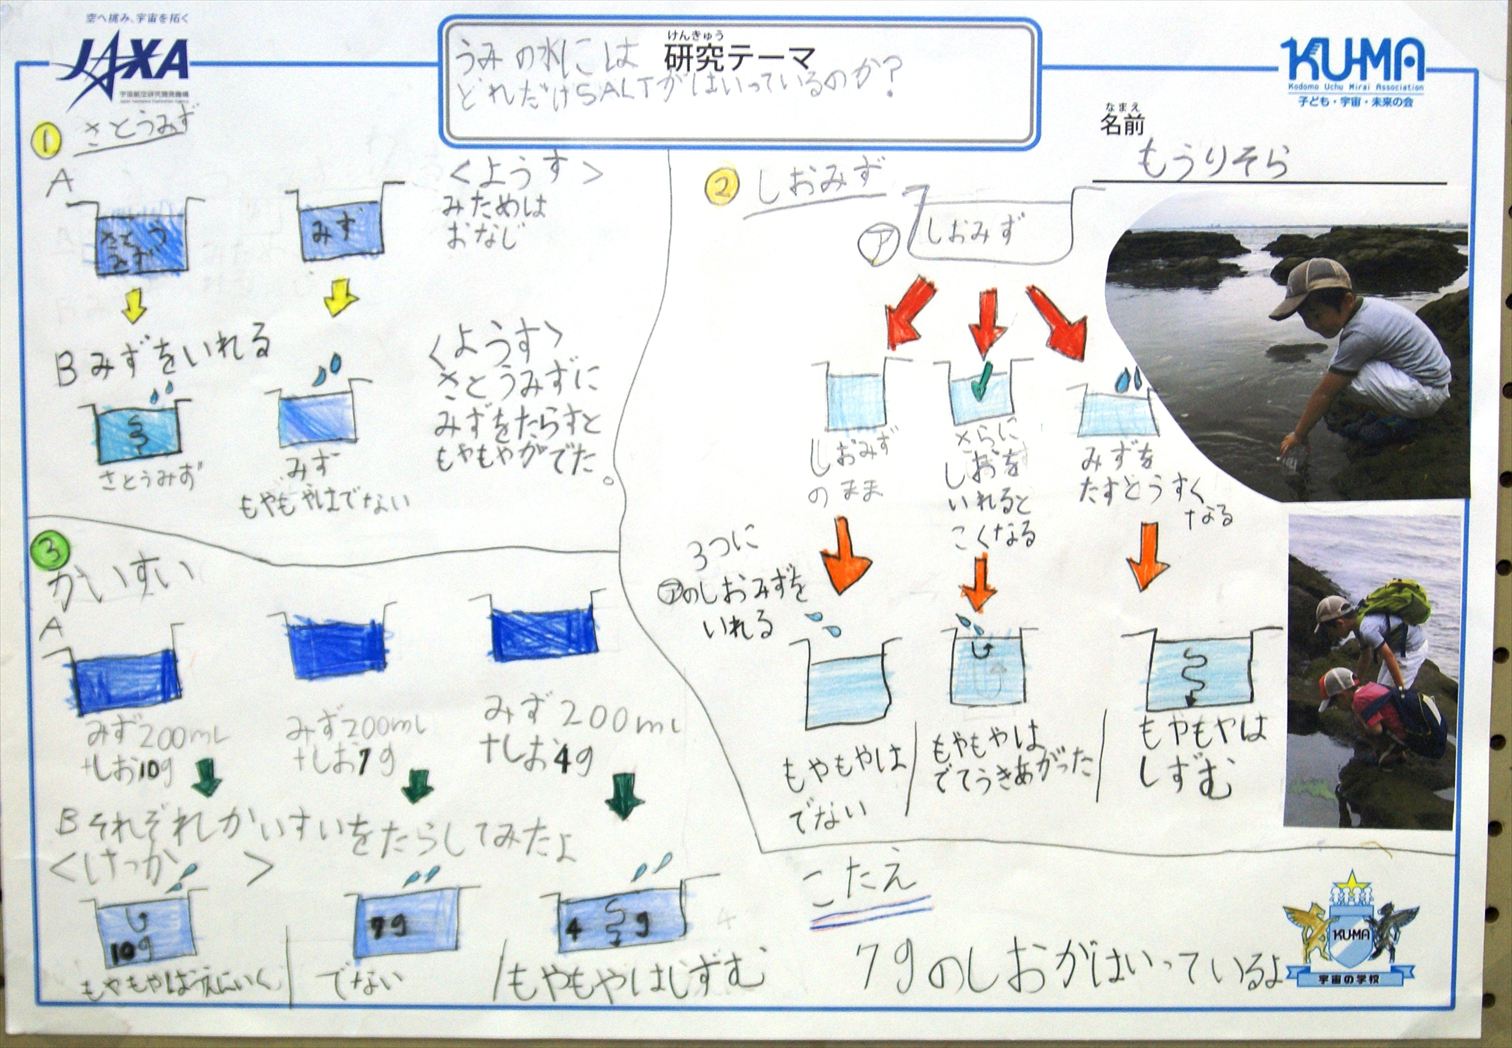 空へ挑み、宇宙を拓く
JAXA
宇宙航空研究開発機構
けんきゅう
研究テーマ
うみの水には
どれだけSALTがはいっているのか?
KU-MA
Kodomo Uchu Mirai Association
子ども・宇宙・未来の会
なまえ
名前
もうりそら
① さとうみず
A
さとう
みず
みず
<ようす>
みためは
おなじ
Bみずをいれる
さとうみず
みず
もやもやはでない
<ようす>
さとうみずに
みずをたらすと
もやもやがでた。
② しおみず
ア
しおみず
しおみず
のまま
さらに
しおを
いれると
こくなる
みずを
たすとうすく
なる
3つに
アのしおみずを
いれる
もやもやは
でない
もやもやは
でてうきあがった
もやもやは
しずむ
③
かいすい
A
みず200mL
+しお10g
みず200mL
+しお7g
みず200mL
+しお4g
Bそれぞれかいすいをたらしてみたよ
<けっか>
10g
もやもやはうえにいく
7g
でない
4g
もやもやはしずむ
こたえ
7gのしおがはいっているよ
KU-MA
宇宙の学校